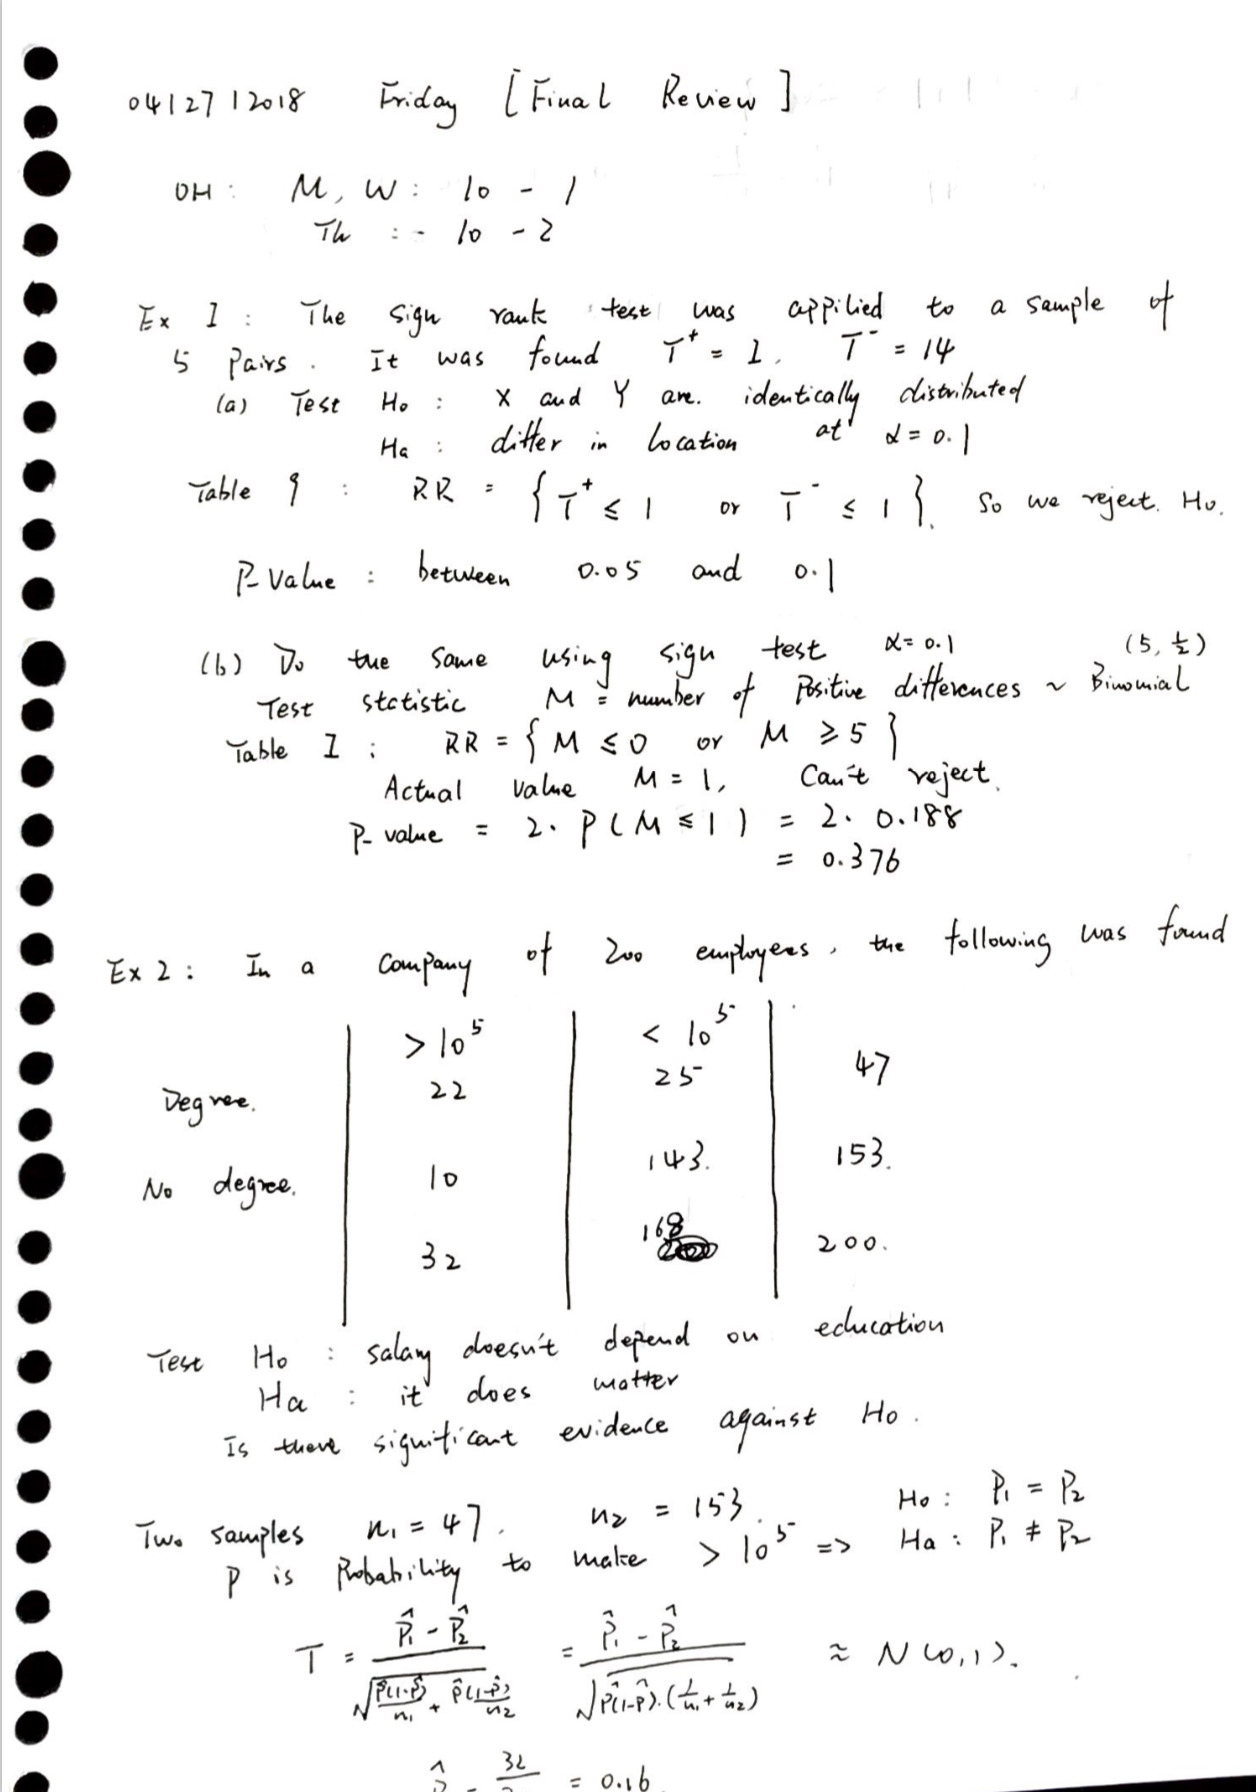 04/27/2018 Friday [Final Review]
OH: M, W: 10 - 1
Th :- 10 - 2
Ex 1: The sign rank test was appilied to a sample of
5 pairs. It was found T⁺ = 1, T⁻ = 14
(a) Test H₀ : X and Y are. identically distributed
Hₐ : differ in location at α = 0.1
Table 9 : RR = {T⁺ ≤ 1 or T⁻ ≤ 1}. So we reject. H₀.
P-Value : between 0.05 and 0.1
(b) Do the same using sign test α = 0.1 (5, ½)
Test statistic M = number of positive differences ~ Binomial
Table 1 : RR = {M ≤ 0 or M ≥ 5}
Actual value M = 1, Can't reject.
P-value = 2· P(M ≤ 1) = 2· 0.188
= 0.376
Ex 2: In a company of 200 employees, the following was found
> 10⁵ < 10⁵
Degree. 22 25 47
No degree. 10 143. 153.
32 168 200.
Test H₀ : salary doesn't depend on education
Hₐ : it does matter
Is there significant evidence against H₀.
Two samples n₁ = 47. n₂ = 153. H₀: P₁ = P₂
P is Probability to make > 10⁵ => Hₐ: P₁ ≠ P₂
T = (P̂₁ - P̂₂)/√(P̂(1-P̂)/n₁ + P̂(1-P̂)/n₂) = (P̂₁ - P̂₂)/√(P̂(1-P̂)·(1/n₁ + 1/n₂)) ≈ N(0,1).
32 = 0.16